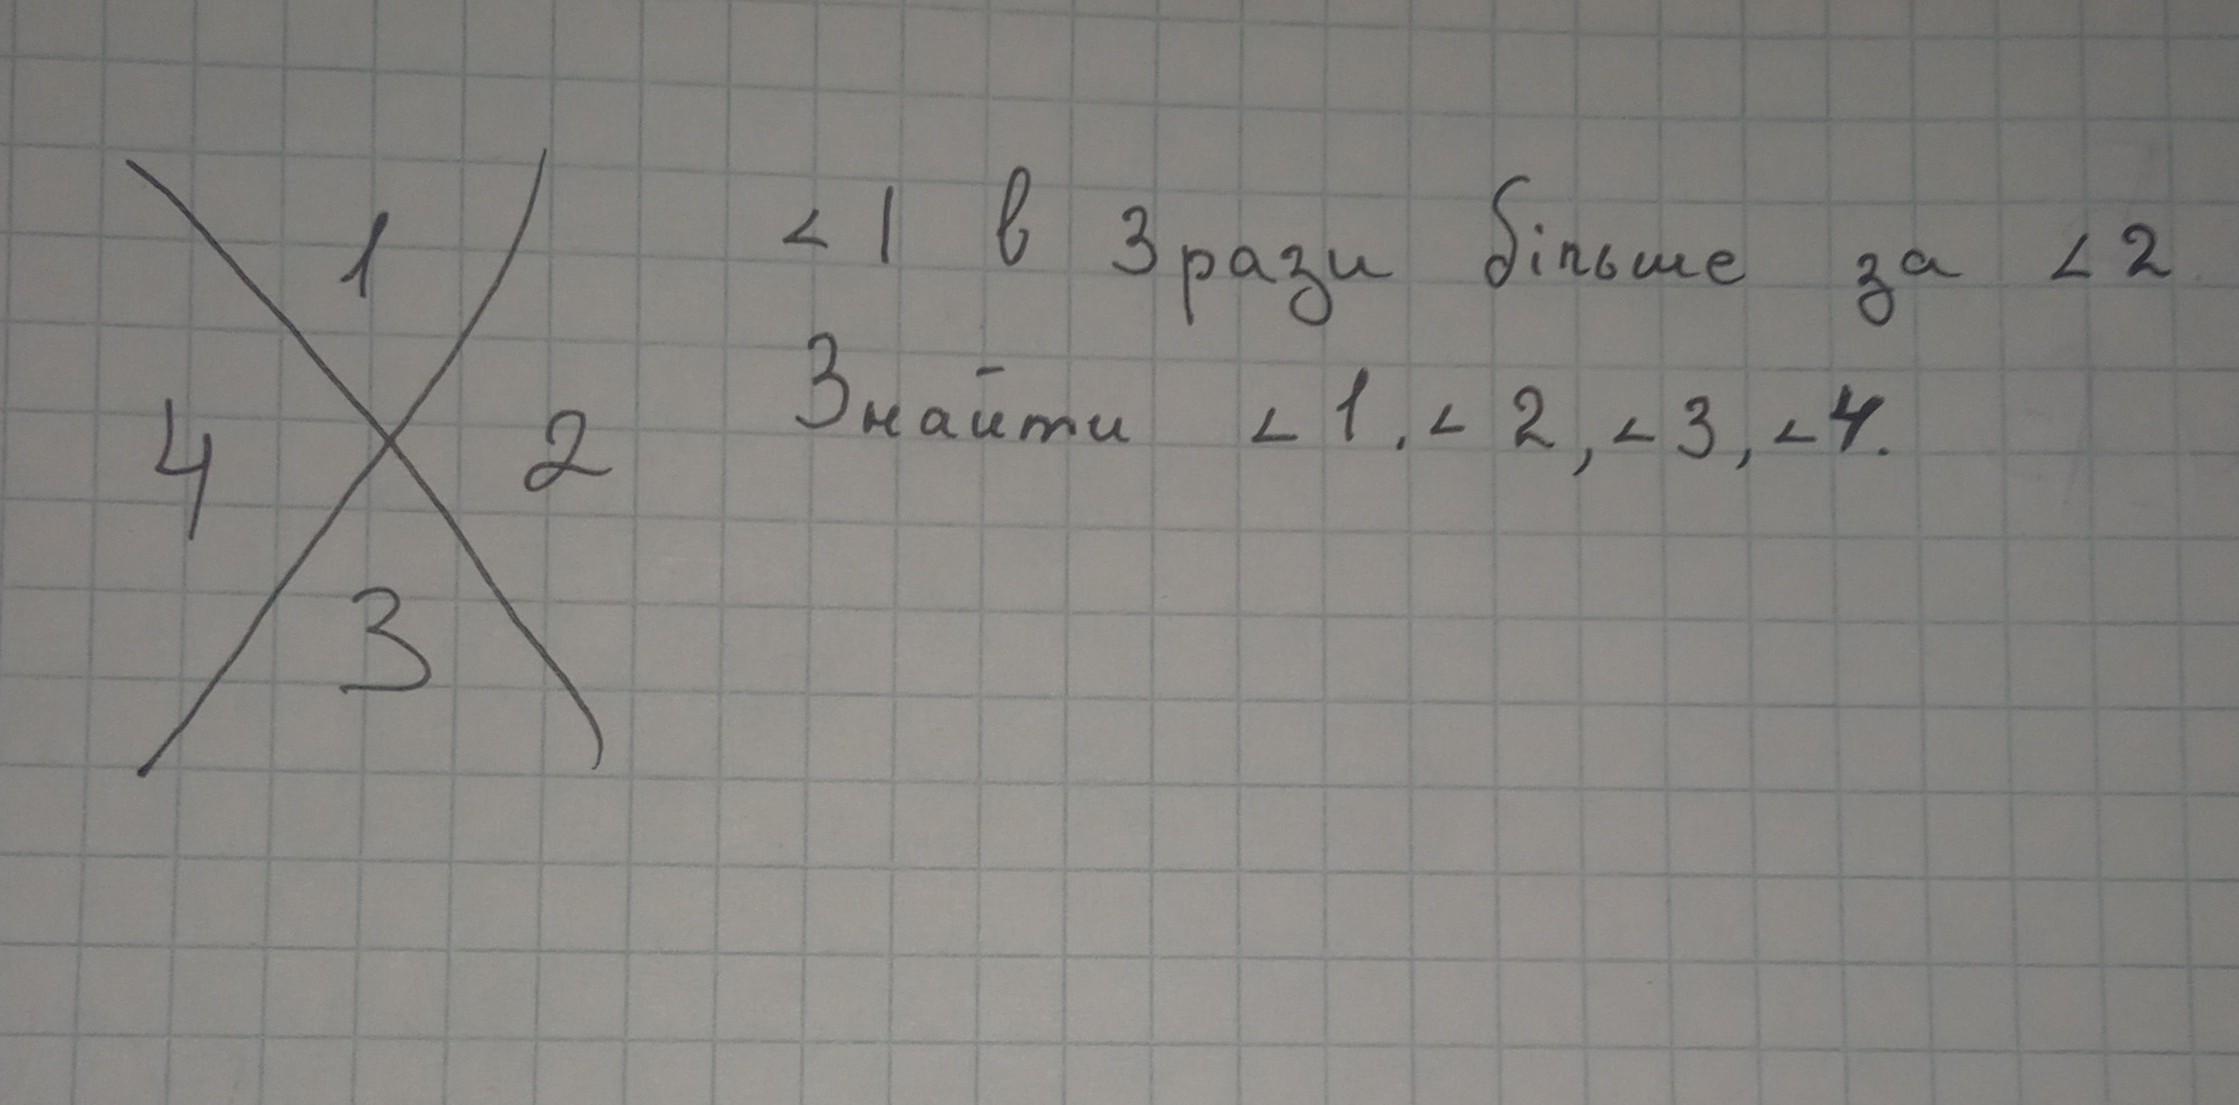 1
4 2
3
< 1 в 3 рази більше за < 2
Знайти < 1, < 2, < 3, < 4.